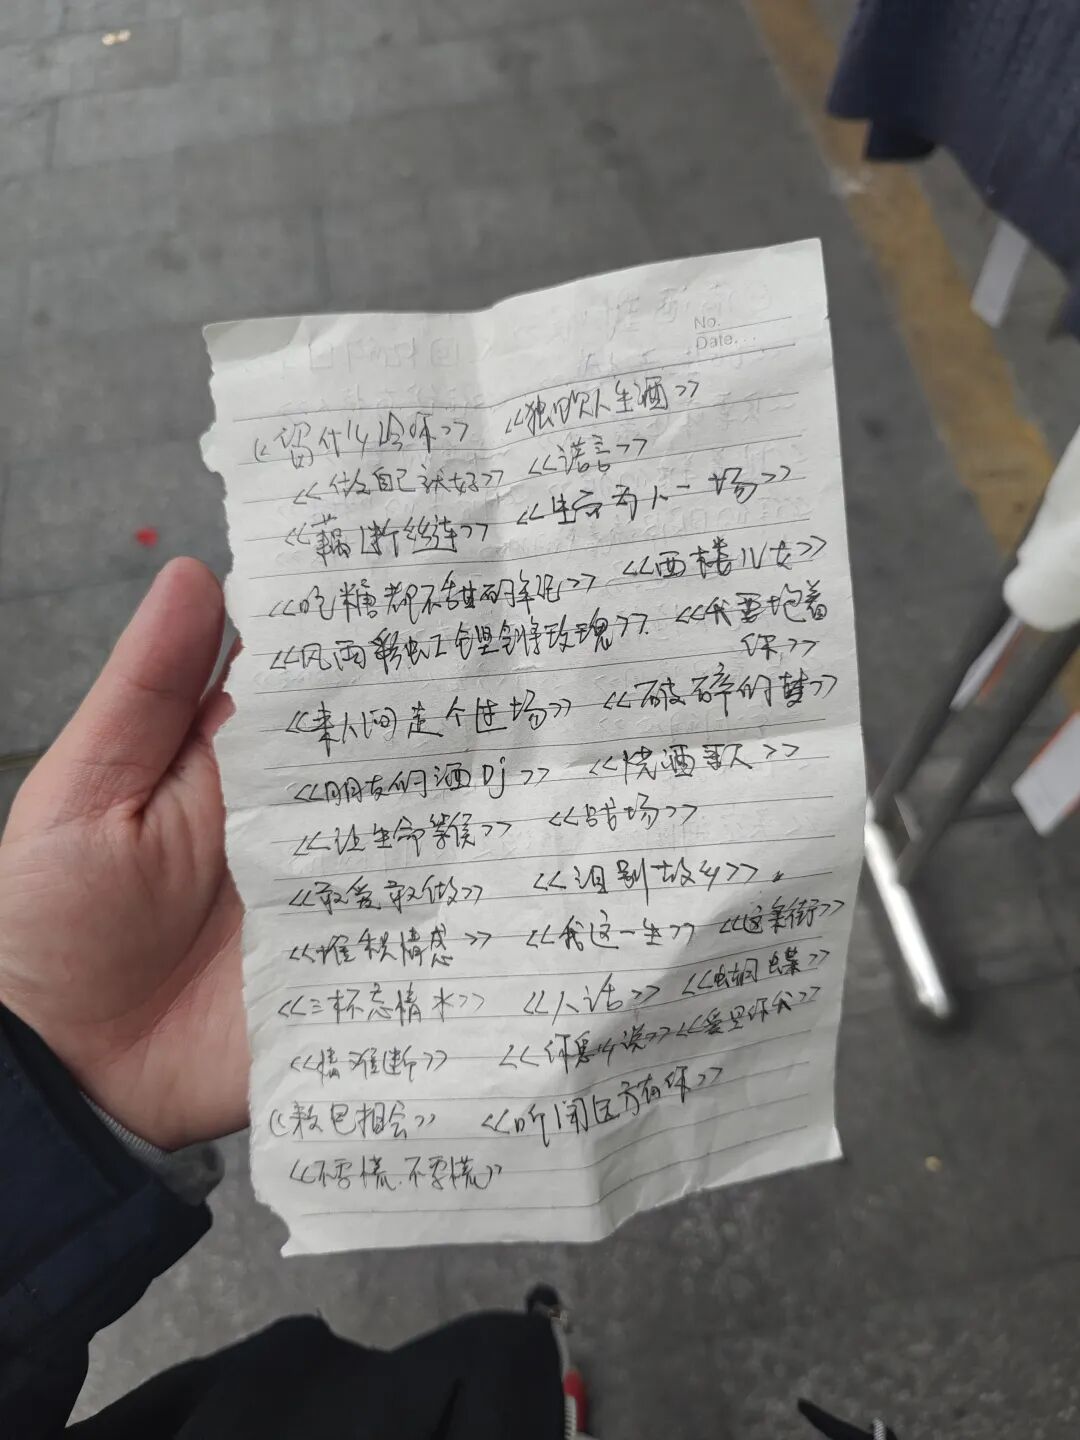 No.
Date.
《留什么给你》 《独饮人生酒》
《做自己就好》 《诺言》
《藕断丝连》 《生而为人一场》
《吃糖都不甜的年纪》 《西楼儿女》
《风雨彩虹铿锵玫瑰》 《我要抱着
你》
《来人间走个过场》 《破碎的梦》
《朋友的酒Dj》 《烧酒歌》
《让生命等候》 《战场》
《敢爱敢做》 《泪别故乡》
《堆积情感》 《我这一生》 《这条街》
《三杯忘情水》 《人话》 《蝴蝶》
《情难断》 《你怎么说》《爱里你我》
《敖包相会》 《听闻远方有你》
《不要慌.不要慌》